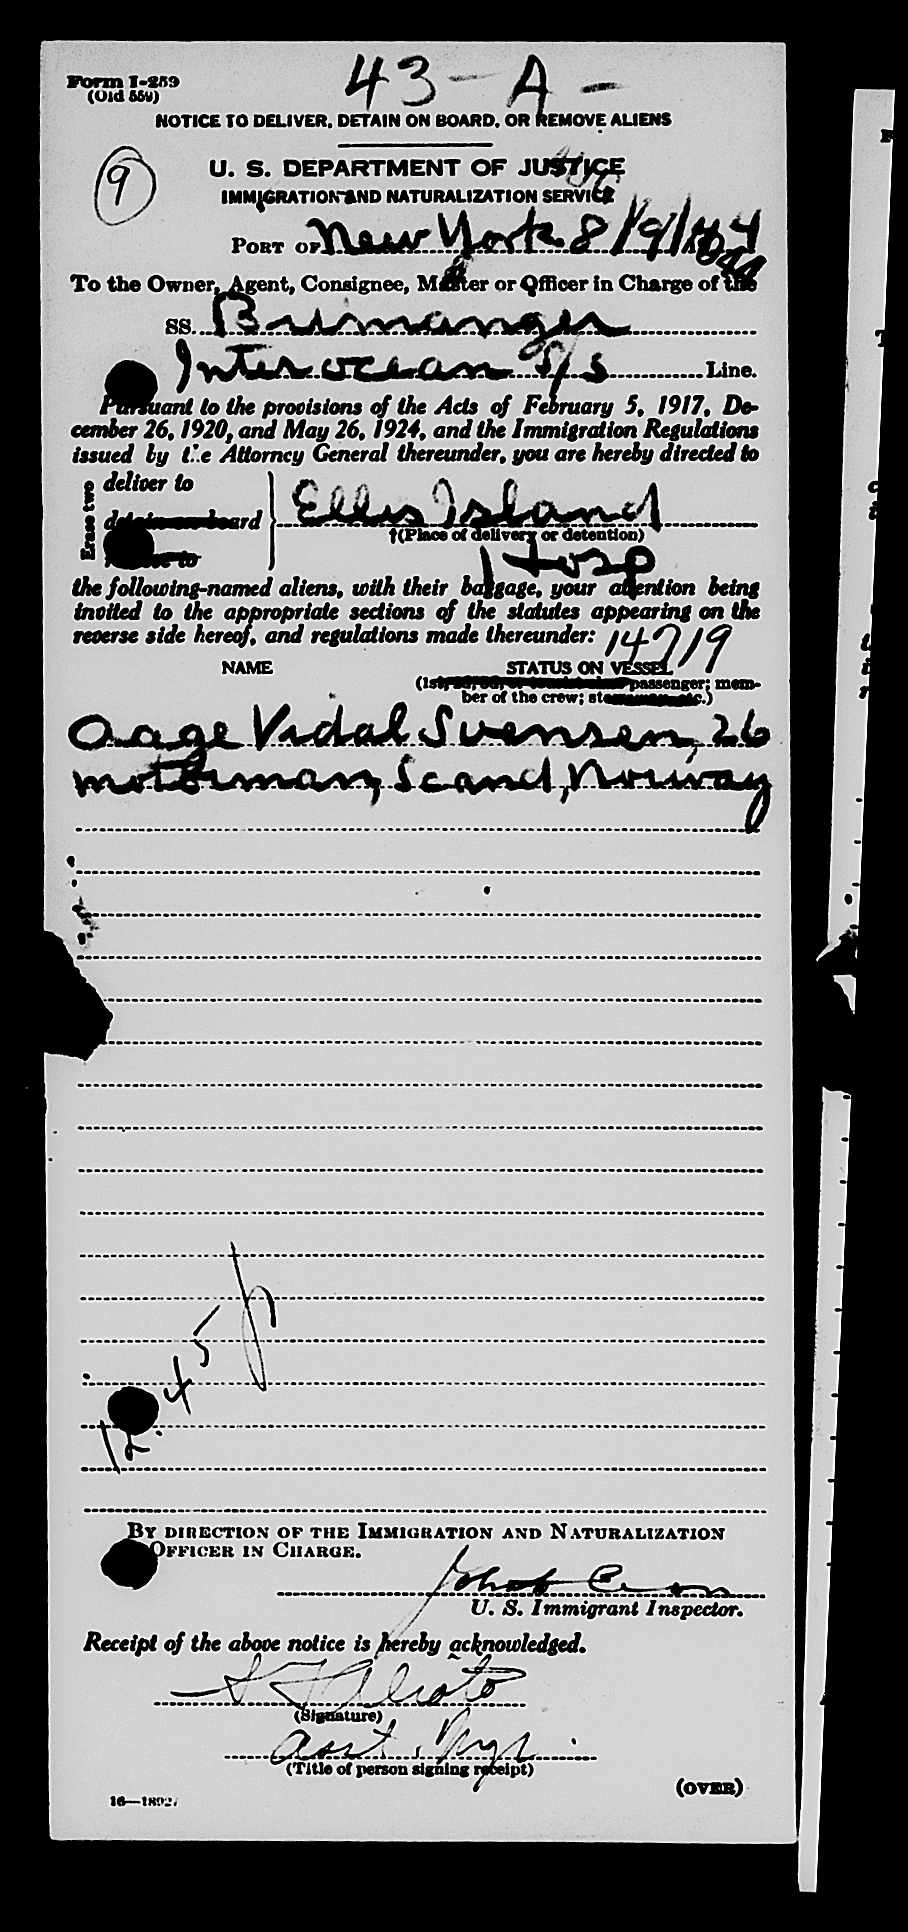 Form I-259
(Old 559)
43-A-
NOTICE TO DELIVER, DETAIN ON BOARD, OR REMOVE ALIENS
9
U. S. DEPARTMENT OF JUSTICE
IMMIGRATION AND NATURALIZATION SERVICE
PORT OF New York 8/9/44
To the Owner, Agent, Consignee, Master or Officer in Charge of the
SS. Brimanger
Interocean S/S Line.
Pursuant to the provisions of the Acts of February 5, 1917, De-
cember 26, 1920, and May 26, 1924, and the Immigration Regulations
issued by the Attorney General thereunder, you are hereby directed to
Erase two
deliver to
detain on board
Ellis Island
†(Place of delivery or detention)
Hosp
the following-named aliens, with their baggage, your attention being
invited to the appropriate sections of the statutes appearing on the
reverse side hereof, and regulations made thereunder:
14719
NAME STATUS ON VESSEL
(1st, passenger; mem-
ber of the crew; etc.)
Aage Vidal Svensen, 26
motorman, Scand, Norway
12.45
BY DIRECTION OF THE IMMIGRATION AND NATURALIZATION
OFFICER IN CHARGE.
U. S. Immigrant Inspector.
Receipt of the above notice is hereby acknowledged.
(Signature)
Asst. Mgr.
(Title of person signing receipt)
(OVER)